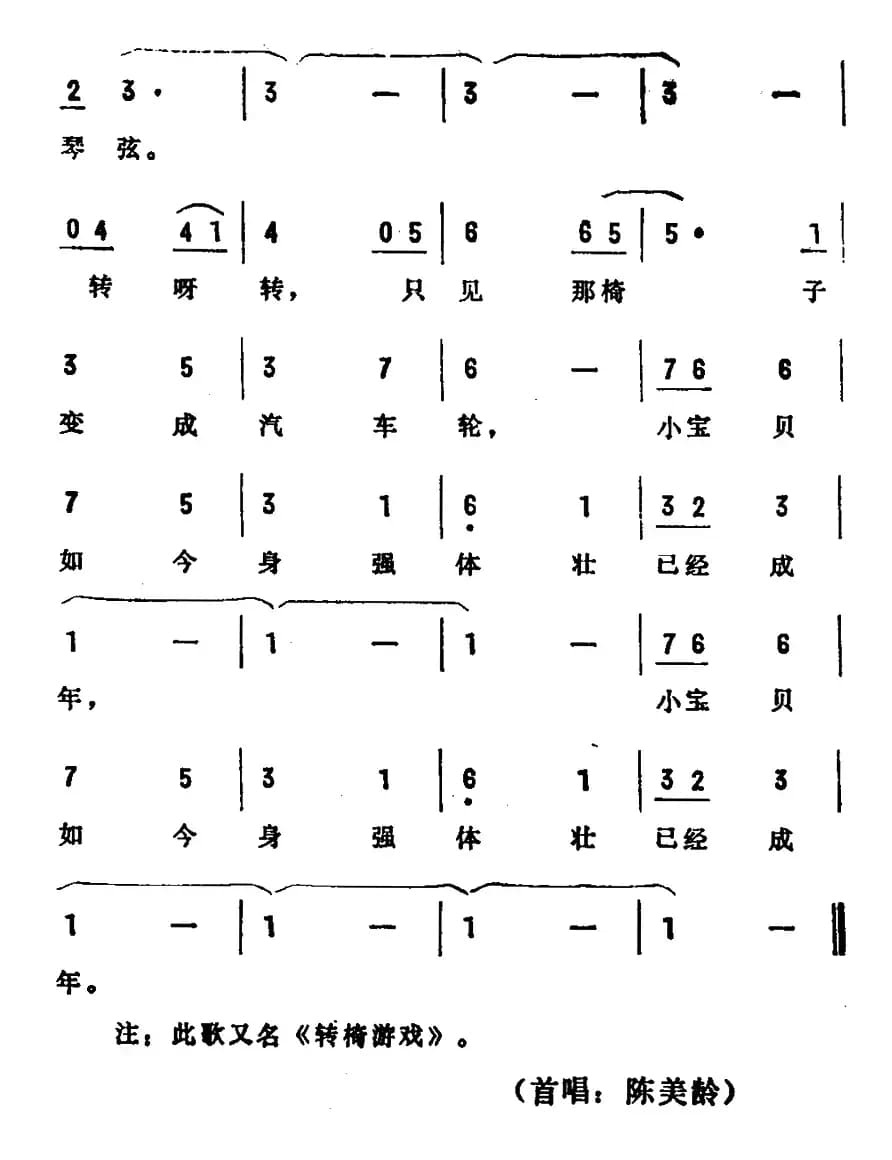 2 3· | 3 — | 3 — | 3 — |
琴 弦。
0 4 4 1 | 4 0 5 | 6 6 5 | 5· 1 |
转 呀 转, 只 见 那 椅 子
3 5 | 3 7 | 6 — | 7 6 6 |
变 成 汽 车 轮, 小 宝 贝
7 5 | 3 1 | 6̣ 1 | 3 2 3 |
如 今 身 强 体 壮 已 经 成
1 — | 1 — | 1 — | 7 6 6 |
年, 小 宝 贝
7 5 | 3 1 | 6̣ 1 | 3 2 3 |
如 今 身 强 体 壮 已 经 成
1 — | 1 — | 1 — | 1 — ‖
年。
注: 此歌又名《转椅游戏》。
(首唱: 陈美龄)